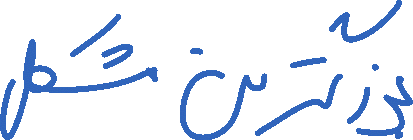 بزرگترین مشکل